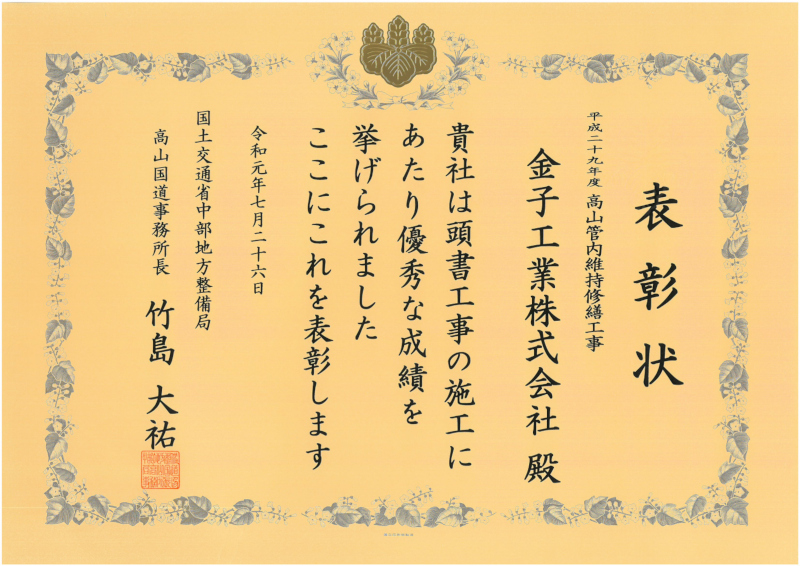 表彰状
平成二十九年度 高山管内維持修繕工事
金子工業株式会社 殿
貴社は頭書工事の施工に
あたり優秀な成績を
挙げられました
ここにこれを表彰します
令和元年七月二十六日
国土交通省中部地方整備局
高山国道事務所長 竹島 大祐